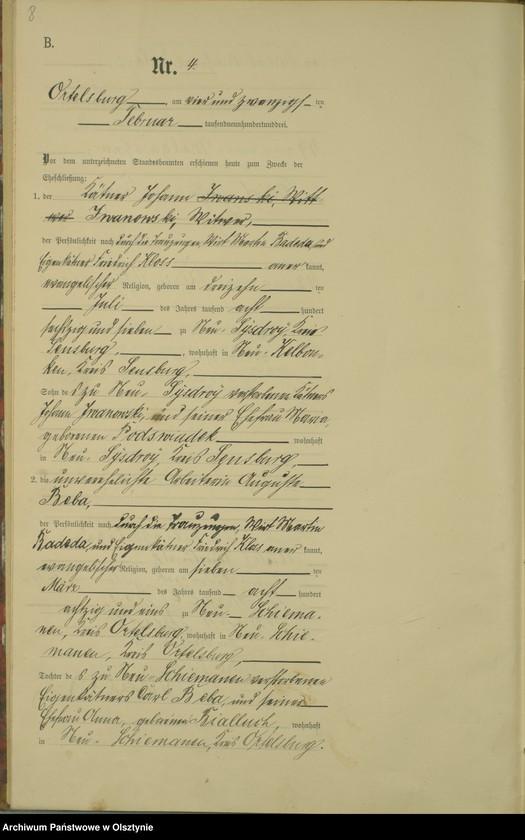 8
B.
Nr. 4.
Ortelsburg, am vier und zwanzigsten
Februar tausendneunhundertunddrei.
Vor dem unterzeichneten Standesbeamten erschienen heute zum Zwecke der
Eheschließung:
1. der Kätner Johann Iwanski, Witt
wer Iwanowski, Witwer,
der Persönlichkeit nach durch die Trauzeugen, Wirt Martin Badeda und
Eigenkätner Friedrich Kloss anerkannt,
evangelischer Religion, geboren am dreizehnten
Juli des Jahres tausend achthundert
sechzig und sieben zu Neu-Sysdroy, Kreis
Sensburg, wohnhaft in Neu-Kelbon-
ken, Kreis Sensburg,
Sohn des zu Neu-Sysdroy verstorbenen Kätners
Johann Iwanowski, und seiner Ehefrau Maria,
geborenen Podswiadek wohnhaft
in Neu-Sysdroy, Kreis Sensburg,
2. die unverehelichte Arbeiterin Auguste
Beba,
der Persönlichkeit nach durch die Trauzeugen, Wirt Martin
Badeda, und Eigenkätner Friedrich Kloss anerkannt,
evangelischer Religion, geboren am siebenten
März des Jahres tausend achthundert
achtzig und eins zu Neu-Schiema-
nen, Kreis Ortelsburg, wohnhaft in Neu-Schie-
manen, Kreis Ortelsburg,
Tochter des zu Neu-Schiemanen verstorbenen
Eigenkätners Carl Beba, und seiner
Ehefrau Anna, geborenen Bialluch, wohnhaft
in Neu-Schiemanen, Kreis Ortelsburg.
Archiwum Państwowe w Olsztynie